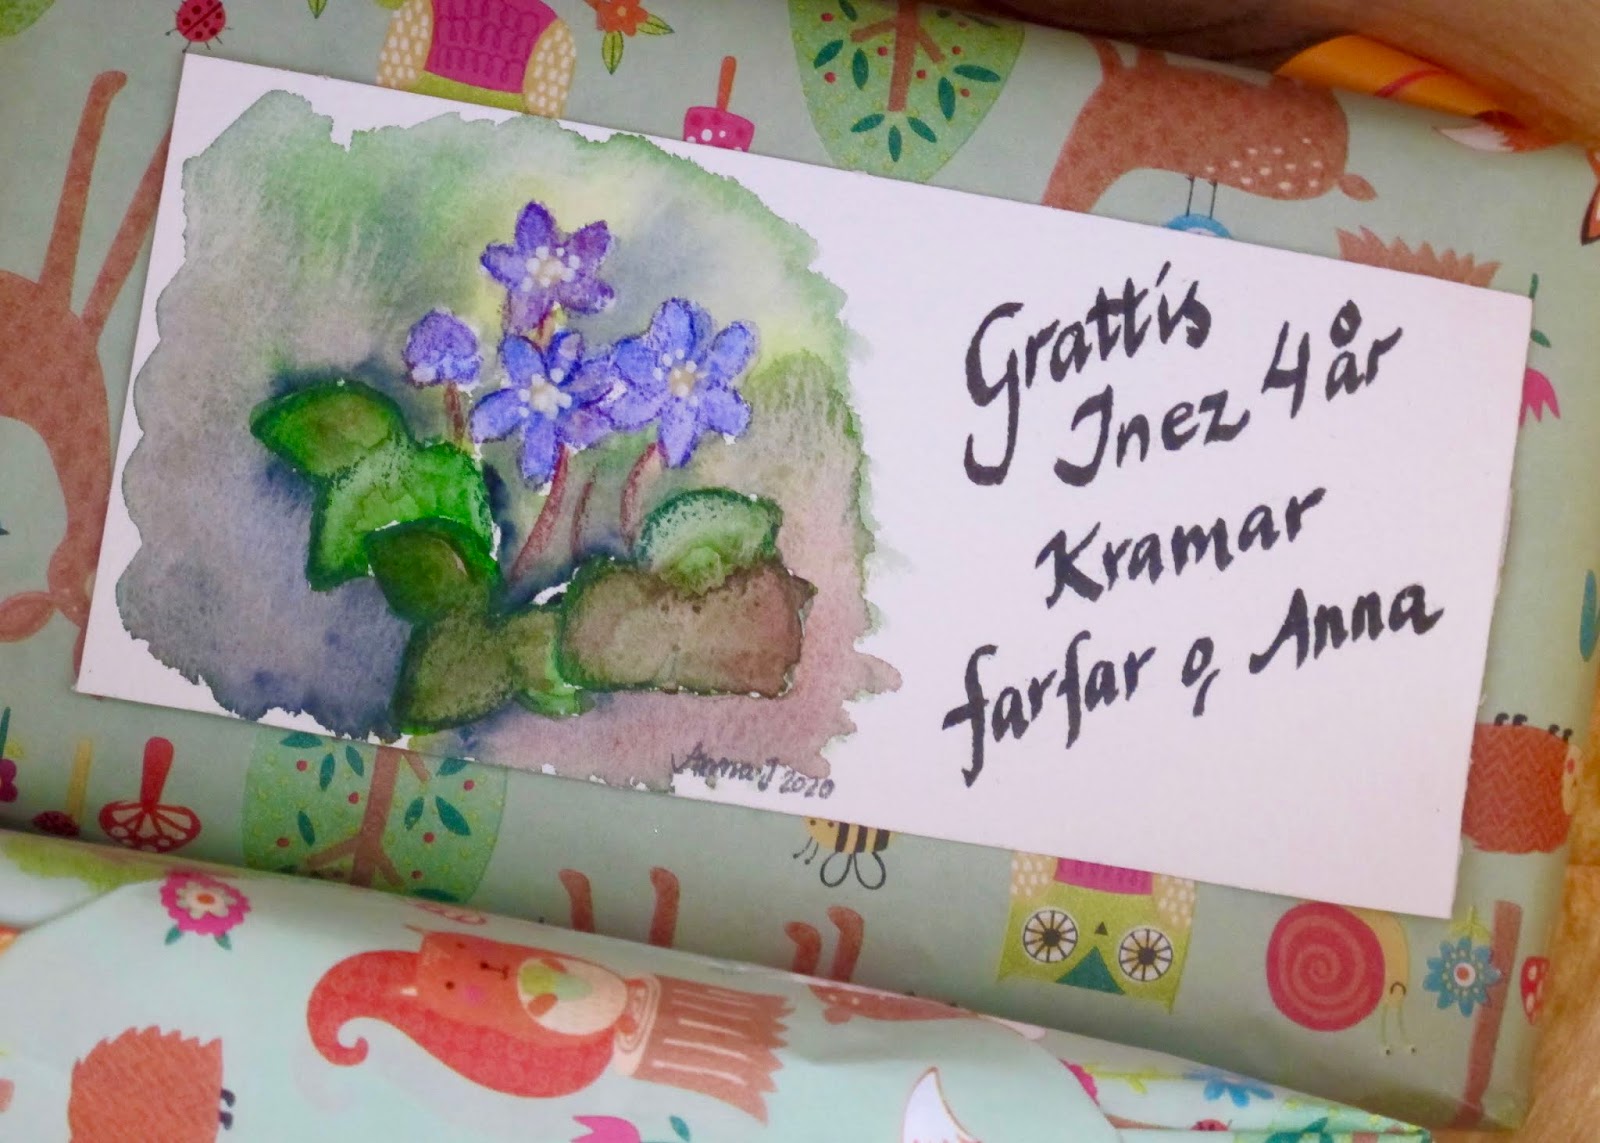 Grattis
Inez 4 år
Kramar
farfar o, Anna
Anna J 2020